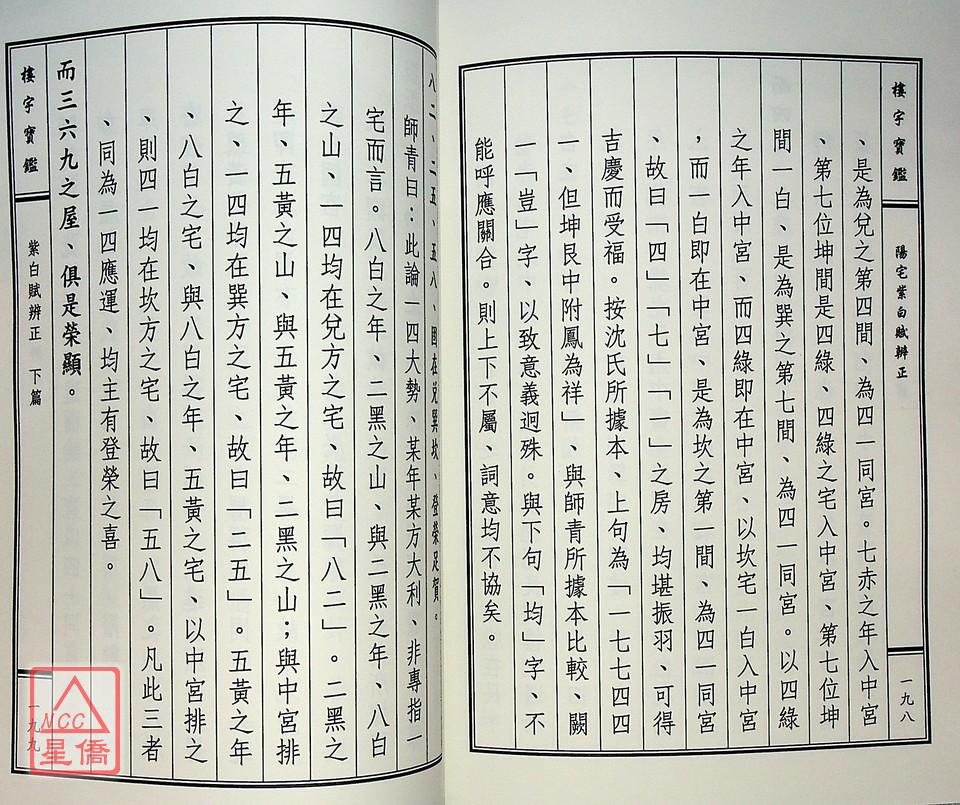 樓宇寶鑑
陽宅紫白賦辨正
一九八
、是為兌之第四間、為四一同宮。七赤之年入中宮
、第七位坤間是四綠、四綠之宅入中宮、第七位坤
間一白、是為巽之第七間、為四一同宮。以四綠
之年入中宮、而四綠即在中宮、以坎宅一白入中宮
，而一白即在中宮、是為坎之第一間、為四一同宮
、故曰「四」「七」「一」之房、均堪振羽、可得
吉慶而受福。按沈氏所據本、上句為「一七七四四
一、但坤艮中附鳳為祥」、與師青所據本比較、闕
一「豈」字、以致意義迥殊。與下句「均」字、不
能呼應關合。則上下不屬、詞意均不協矣。
八二、二五、五八、固在兌巽坎、登榮足賀。
師青曰：此論一四大勢、某年某方大利、非專指一
宅而言。八白之年、二黑之山、與二黑之年、八白
之山、一四均在兌方之宅、故曰「八二」。二黑之
年、五黃之山、與五黃之年、二黑之山；與中宮排
之、一四均在巽方之宅、故曰「二五」。五黃之年
、八白之宅、與八白之年、五黃之宅、以中宮排之
、則四一均在坎方之宅、故曰「五八」。凡此三者
、同為一四應運、均主有登榮之喜。
而三六九之屋、俱是榮顯。
樓宇寶鑑
紫白賦辨正 下篇
一九九
NCC
星僑